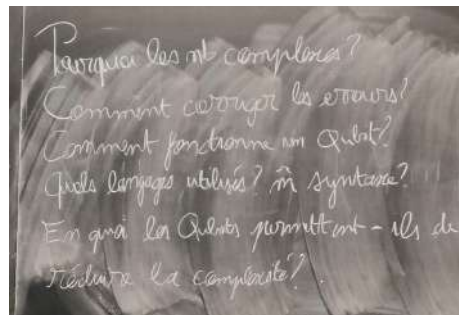 Pourquoi les nb complexes?
Comment corriger les erreurs?
Comment fonctionne un Qubit?
Quels langages utilisés? m̂ syntaxe?
En quoi les Qubits permettent-ils de
réduire la complexité?